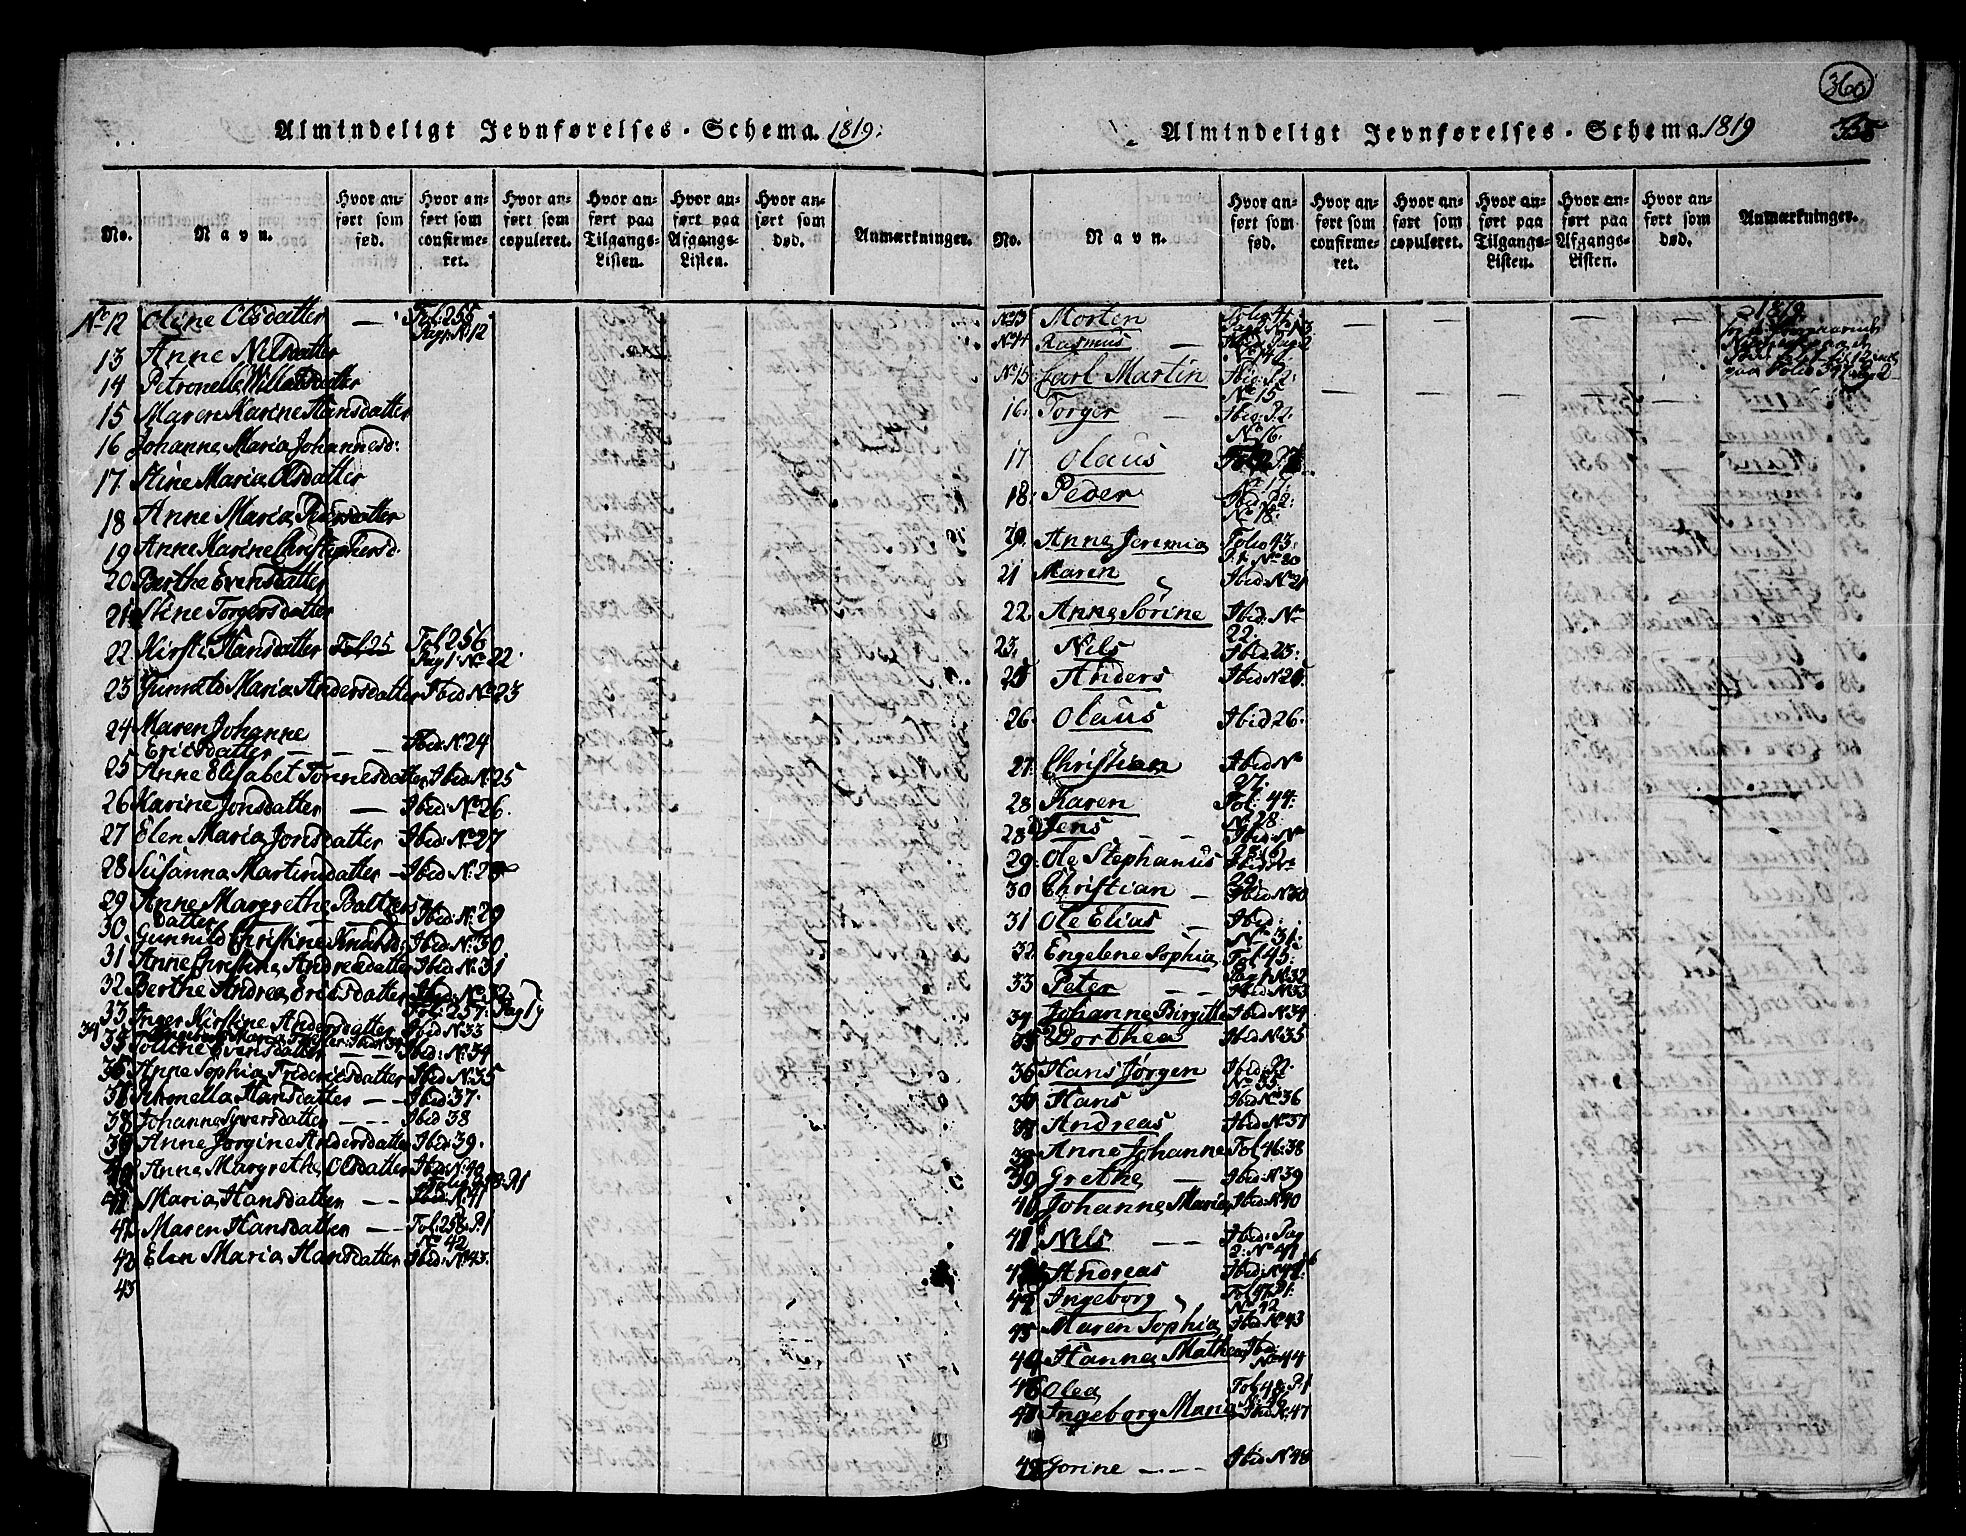 360
Almindeligt Jevnførelses-Schema 1819:
No.
Navn.
Hvor anført som fød.
Hvor anført som confirmeret.
Hvor anført som copuleret.
Hvor anført paa Tilgangs-Listen.
Hvor anført paa Afgangs-Listen.
Hvor anført som død.
Anmærkninger.
No 12 Oline Olsdatter — Fol: 255 Pag 1. No 12
13 Anne Nilsdatter
14 Petronelle
15 Maren Karine Hansdatter
16 Johanne Maria Johannesd:
17 Stine Maria Olsdatter
18 Anne Maria Pedersdatter
19 Anne Karine Christophersd:
20 Berthe Evensdatter
21 Stine Torgersdatter
22 Kirsti Hansdatter Fol 25 Fol 256 Pag 1: No 22.
23 Maria Andersdatter Ibid No 23
24 Maren Johanne
Ericsdatter — — — Ibid: No 24
25 Anne Elisabet Tønnesdatter Ibid: No 25
26 Karine Jonsdatter — Ibid: No 26.
27 Elen Maria Jonsdatter Ibid: No 27
28 Susanna Martinsdatter — Ibid: No 28
29 Anne Margrethe
30 datter — — Ibid: No 29
Gunnild Christine Ibid: No 30
31 Anne Christine Andreasdatter Ibid: No 31
32 Berthe Andrea Ericsdatter Ibid: No 32:
33 Fol: 257: Pag 1
Inger Kirstine Andersdatter Ibid No 33
34
35 Evensdatter — — Ibid: No 34
36 Anne Sophia Fredericsdatter Ibid No 35
Hansdatter — — Ibid: 37.
38 Johanne Syversdatter — — — Ibid 38
39 Anne Jorgine Andersdatter Ibid: 39.
40 Anne Margrethe Olsdatter Ibid: No 40
Maria Hansdatter — — Ibid: No 41
Maren Hansdatter — — Fol: 258: P. 1 No 42
42 Elen Maria Hansdatter Ibid: No 43.
43
Almindeligt Jevnførelses-Schema 1819
No.
Navn.
Hvor anført som fød.
Hvor anført som confirmeret.
Hvor anført som copuleret.
Hvor anført paa Tilgangs-Listen.
Hvor anført paa Afgangs-Listen.
Hvor anført som død.
Anmærkninger.
No 13 Morten Folio 41. Pag 2 No 13 — — — — —
1819
No 14 Rasmus — Ibid: Pag 2 No 14
No 15 Carl Martin Ibid: P. 2: No 15
16. Torger — Ibid: P. 2: No 16.
17 Olaus
No 17:
18: Peder Ibid: P 2: No 18:
Anne Jeremia Folio 43: P. 1. No 20
21 Maren Ibid: No 21
22. Anne Sørine Ibid: No 22.
23. Nils Ibid: 23:
25 Anders Ibid No 25.
26. Olaus Ibid 26.
27. Christian Ibid No 27.
28. Karen Fol: 44: No 28
28 Jens — — Ibid: No 28:(b)
29: Ole Stephanus Ibid: No 29.
30 Christian — Ibid No 30
31 Ole Elias — Ibid: No 31:
32. Engelene Sophia Fol 45: Pag 1 No 32
33 Peter — — Ibid: No 33
34 Johanne Birgitte Ibid No 34
35 Dorthea Ibid No 35
36 Hans Jørgen Ibid: P 2. No 35:
Hans Ibid: No 36
37 Andreas Ibid: No 37
38 Anne Johanne Fol 46: 38
39 Grethe — Ibid: No 39
40 Johanne Maria Ibid: No 40
41 Nils — — Ibid: Pag 2: No 41
Andreas Ibid: No 41
42 Ingeborg Fol 47 P 1: No 42
Maren Sophia Ibid: No 43
Hanne Mathea Ibid: No 44
46 Olea Fol 48: P. 1
Ingeborg Maria Ibid: No 47
49 Gorine — — — Ibid: No 48